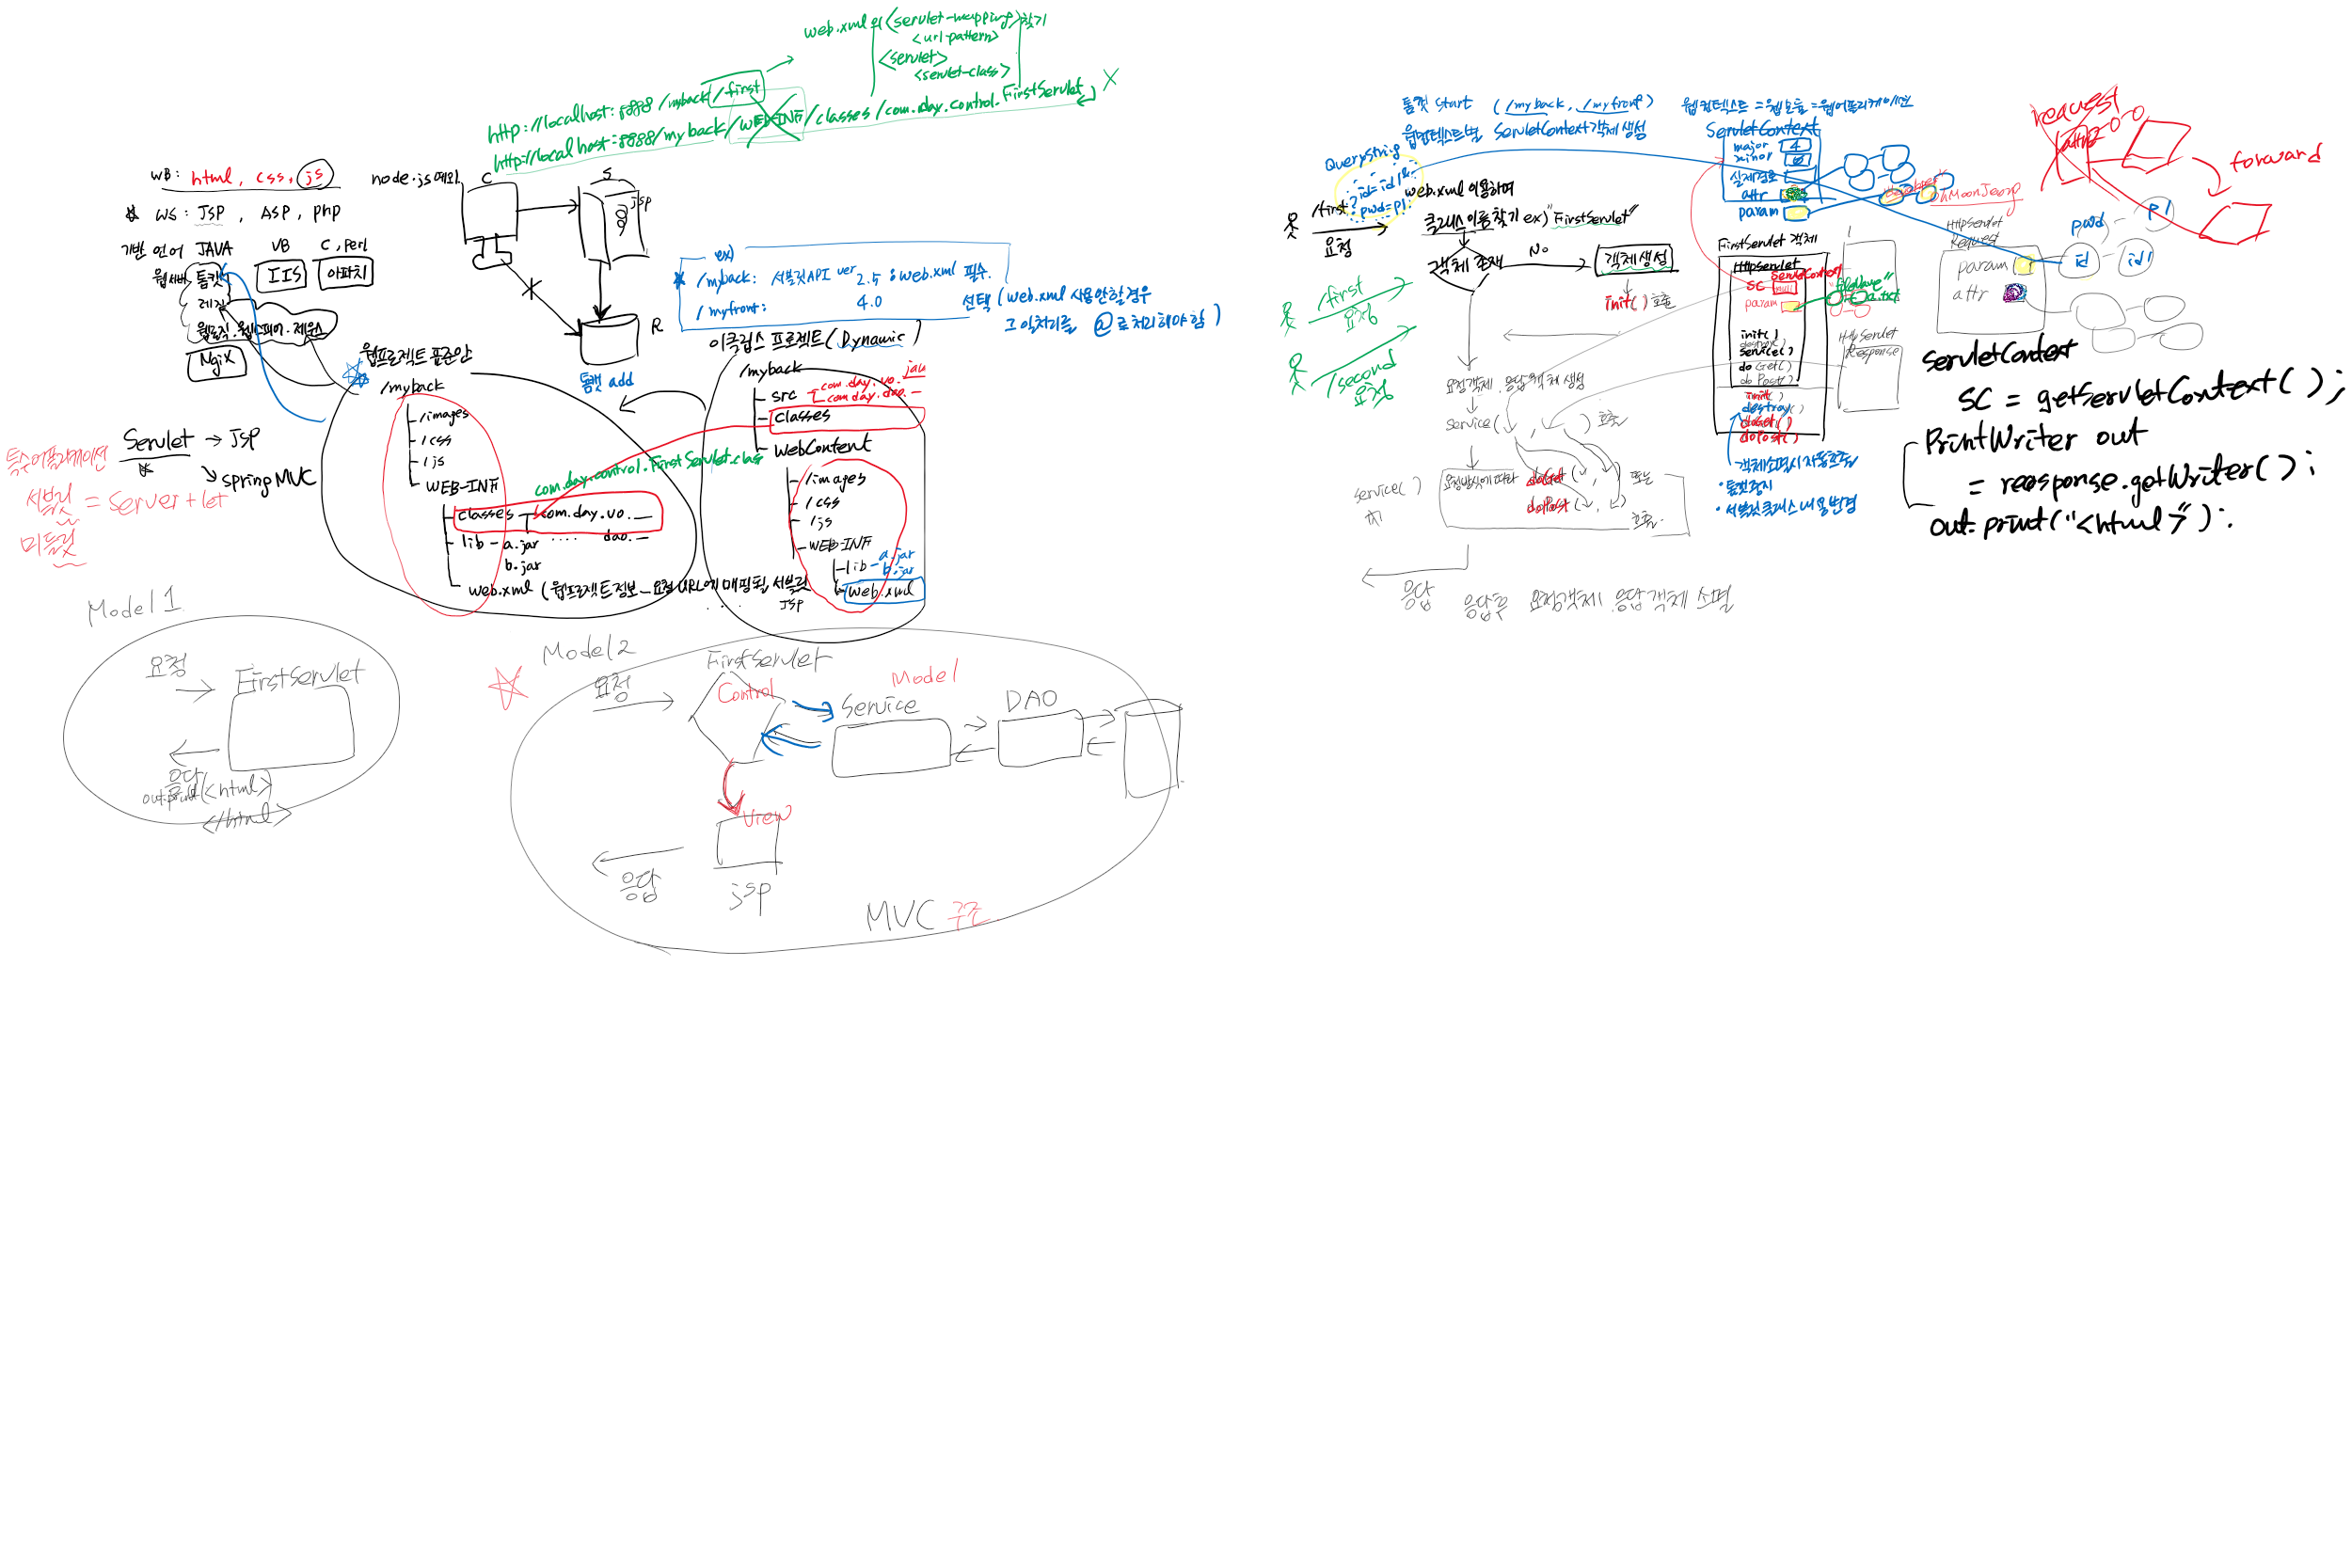 web.xml의 <servlet-mapping>찾기
<url-pattern>
<servlet>
<servlet-class>
http://localhost:8888/myback/first
http://localhost:8888/myback/WEB-INF/classes/com.day.control.FirstServlet
WB: html, css, js
WS: JSP, ASP, php
node.js 예외
C
S
jsp
R
기반 언어 JAVA
VB
C, Perl
웹서버 톰캣
IIS
아파치
레진
웹로직. 웹스피어. 제우스
NgiX
ex)
/myback: 서블릿API ver 2.5 : web.xml 필수.
/myfront: 4.0 선택 (web.xml 사용안할경우
그 외처리를 @로 처리해야 함)
웹프로젝트 표준안
/myback
/images
/css
/js
WEB-INF
classes
com.day.vo.
lib - a.jar
.... dao.
b.jar
web.xml (웹프로젝트정보_요청URL에 매핑될 서블릿
JSP
com.day.control.FirstServlet.clas
톰캣 add
이클립스 프로젝트(Dynamic)
/myback
src
com.day.vo.
java
com.day.dao.
classes
WebContent
/images
/css
/js
WEB-INF
lib - a.jar
b.jar
web.xml
Servlet → JSP
spring MVC
서블릿 = Server + let
미들릿
Model 1
요청
FirstServlet
응답
out.print(<html>
</html>
Model 2
요청
FirstServlet
Control
Model
Service
DAO
View
jsp
응답
MVC 구조
톰캣 start (/myback, /myfront)
웹컨텍스트별 ServletContext객체 생성
웹컨텍스트 = 웹모듈 = 웹어플리케이션
QueryString
?id=id1&
pwd=p1
/first
요청
web.xml 이용하여
클래스이름 찾기 ex)"FirstServlet"
객체 존재
No
객체생성
init() 호출
/first
요청
/second
요청
요청객체. 응답객체 생성
service( , ) 호출
service()
요청방식에 따라 doGet( , ) 또는
doPost( , )
호출
응답
응답후 요청객체, 응답객체 소멸
ServletContext
major 4
minor 0
실제경로
attr
param
FirstServlet 객체
HttpServlet
ServletContext
SC
param
init()
destroy()
service()
doGet()
doPost()
init()
destroy()
doGet()
doPost()
객체소멸시 자동호출
· 톰캣중지
· 서블릿클래스 내용 변경
fileName"
a.txt
OhMoonJeong
HttpServlet
Request
param
attr
pwd
p1
id
id1
HttpServlet
Response
request
attr
forward
servletContext
SC = getServletContext();
PrintWriter out
= reosponse.getWriter();
out.print("<html>");